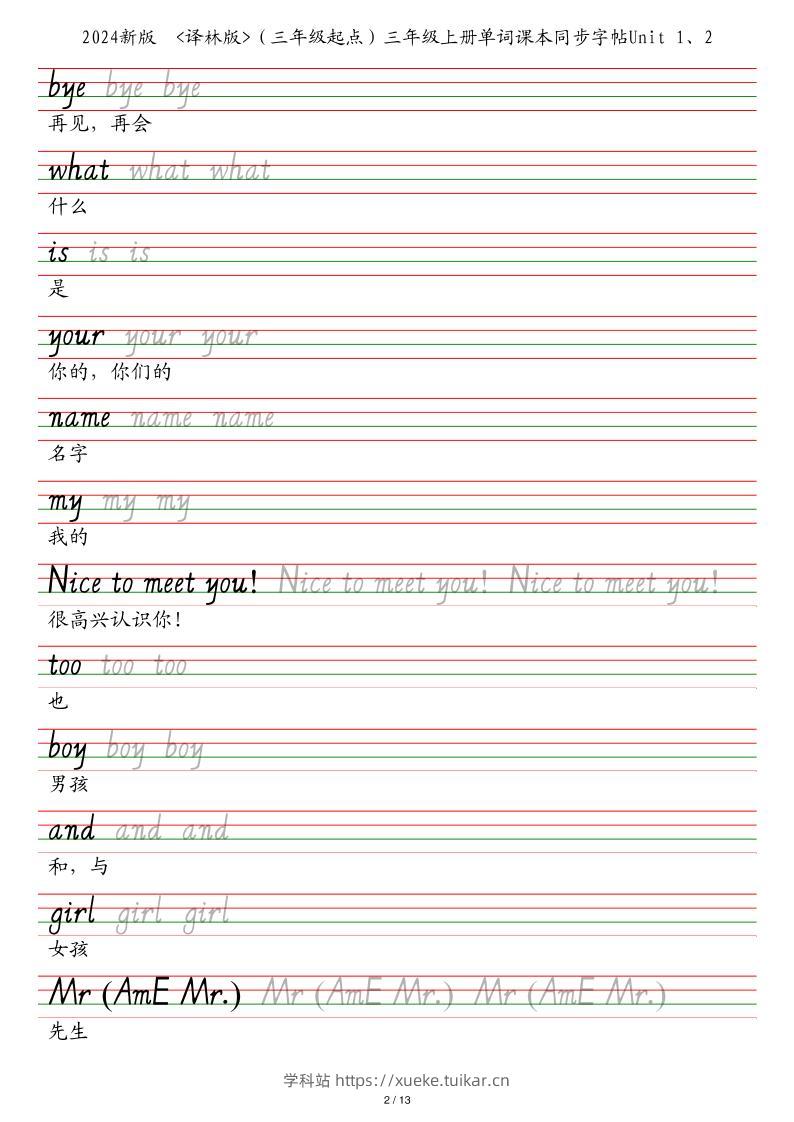 2024新版 <译林版>(三年级起点)三年级上册单词课本同步字帖Unit 1、2
bye bye bye
再见，再会
what what what
什么
is is is
是
your your your
你的，你们的
name name name
名字
my my my
我的
Nice to meet you! Nice to meet you! Nice to meet you!
很高兴认识你!
too too too
也
boy boy boy
男孩
and and and
和，与
girl girl girl
女孩
Mr (AmE Mr.) Mr (AmE Mr.) Mr (AmE Mr.)
先生
学科站 https://xueke.tuikar.cn
2 / 13